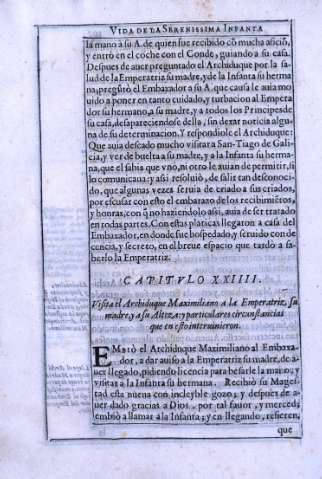 VIDA DE LA SERENISSIMA INFANTA
la mano a su A. de quien fue recibido cõ mucha aficiõ,
y entrò en el coche con el Conde, guiando a su casa.
Despues de auer preguntado el Archiduque por la sa-
lud de la Emperatriz su madre, y de la Infanta su herma
na, pregũtò el Embaxador a su A. que causa le auia mo
uido a poner en tanto cuidado, y turbacion al Empera
dor su hermano, a su madre, y a todos los Principes de
su casa, desapareciendose della, sin dexar noticia algu-
na de su determinacion. Y respondiole el Archiduque:
Que auia desseado mucho visitar a San-Tiago de Gali-
cia, y ver de buelta a su madre, y a la Infanta su herma-
na, que el sabia que vno, ni otro le auian de permitir, si
lo comunicaua: y assi resoluiò, de salir tan desconoci-
do, que algunas vezes seruia de criado a sus criados,
por escusar con esto el embarazo de los recibimiẽtos,
y honras, con q̃ no haziendolo assi, auia de ser tratado
en todas partes. Con estas platicas llegaron a casa del
Embaxador, en donde fue hospedado, y seruido con de
cencia, y secreto, en el breue espacio que tardò a sa-
berlo la Emperatriz.
CAPITVLO XXIIII.
Visita el Archiduque Maximiliano a la Emperatriz, su
madre, y a su Alteza: y particulares circunstancias
que en esto interuinieron.
EMbiò el Archiduque Maximiliano al Embaxa-
dor, a dar auiso a la Emperatriz su madre, de a-
uer llegado, pidiendo licencia para besarle la mano, y
visitar a la Infanta su hermana. Recibiò su Mages-
tad esta nueua con increyble gozo; y despues de a-
uer dado gracias a Dios, por tal fauor, y merced,
embiò a llamar a la Infanta; y en llegando, refieren,
que